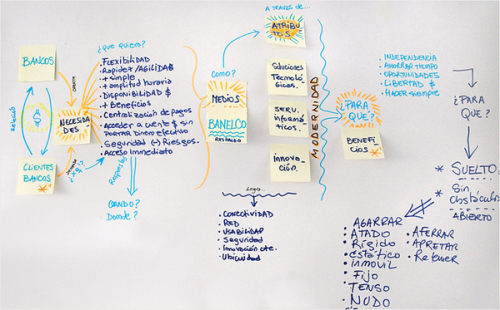 BANCOS
CLIENTES
BANCOS
NECESIDA
DES
¿QUE QUIERO?
• FLEXIBILIDAD
• Rapidez/AGILIDAD
• + simple
• + amplitud horaria
• DISPONIBILIDAD $
• + Beneficios
• Centralización de pagos
• Acceder a cuenta $ sin
PORTAR Dinero efectivo
• Seguridad (-) Riesgos.
• Acceso Inmediato
CUANDO?
Donde?
COMO?
MEDIOS
BANELCO
A TRAVES DE...
ATRIBU
TOS
Soluciones
Tecnoló
gicas.
SERV.
Informá
ticos.
Innova
ción.
MODERNIDAD
Logra
• CONECTIVIDAD
• RED
• USABILIDAD
• Seguridad
• Innovación cte.
• Ubicuidad
¿PARA
QUE?
BENEFI
CIOS
- INDEPENDENCIA
- AHORRAR TIEMPO
- OPORTUNIDADES
- LIBERTAD $
- HACER SIEMPRE
¿PARA
QUE?
* SUELTO.
* Sin
Obstáculos
ABIERTO
• AGARRAR
• ATADO
• Rígido
• estático
• INMOVIL
• FIJO
• TENSO
• NUDO
• AFERRAR
• APRETAR
• Retener